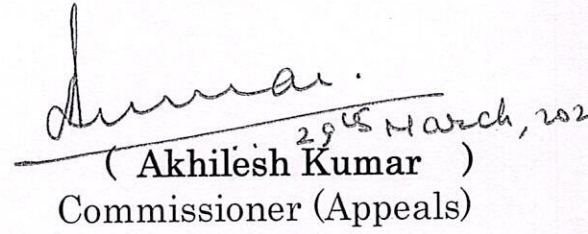 Kumar.
29th March, 202
( Akhilesh Kumar )
Commissioner (Appeals)